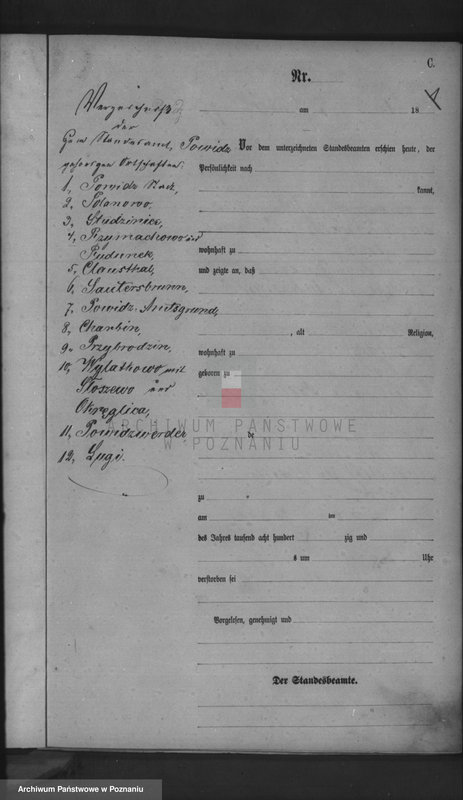 C.
Nr.
Verzeichniß
der
zum Standesamt Powidz
gehörigen Ortschaften:
1, Powidz Stadt,
2, Polanowo,
3, Studzinice,
4, Przymachowo und
Rudunek,
5, Clausthal,
6, Lautersbrunn,
7, Powidz-Amtsgrund,
8, Charbin,
9, Przybrodzin,
10, Wylatkowo mit
Stoszewo und
Okręglica,
11, Powidzwerder
12, Lugi.
am 18
Vor dem unterzeichneten Standesbeamten erschien heute, der
Persönlichkeit nach
kannt,
wohnhaft zu
und zeigte an, daß
, alt Religion,
wohnhaft zu
geboren zu
de
zu
am ten
des Jahres tausend acht hundert zig und
s um Uhr
verstorben sei
Vorgelesen, genehmigt und
Der Standesbeamte.
ARCHIWUM PAŃSTWOWE
W POZNANIU
Archiwum Państwowe w Poznaniu